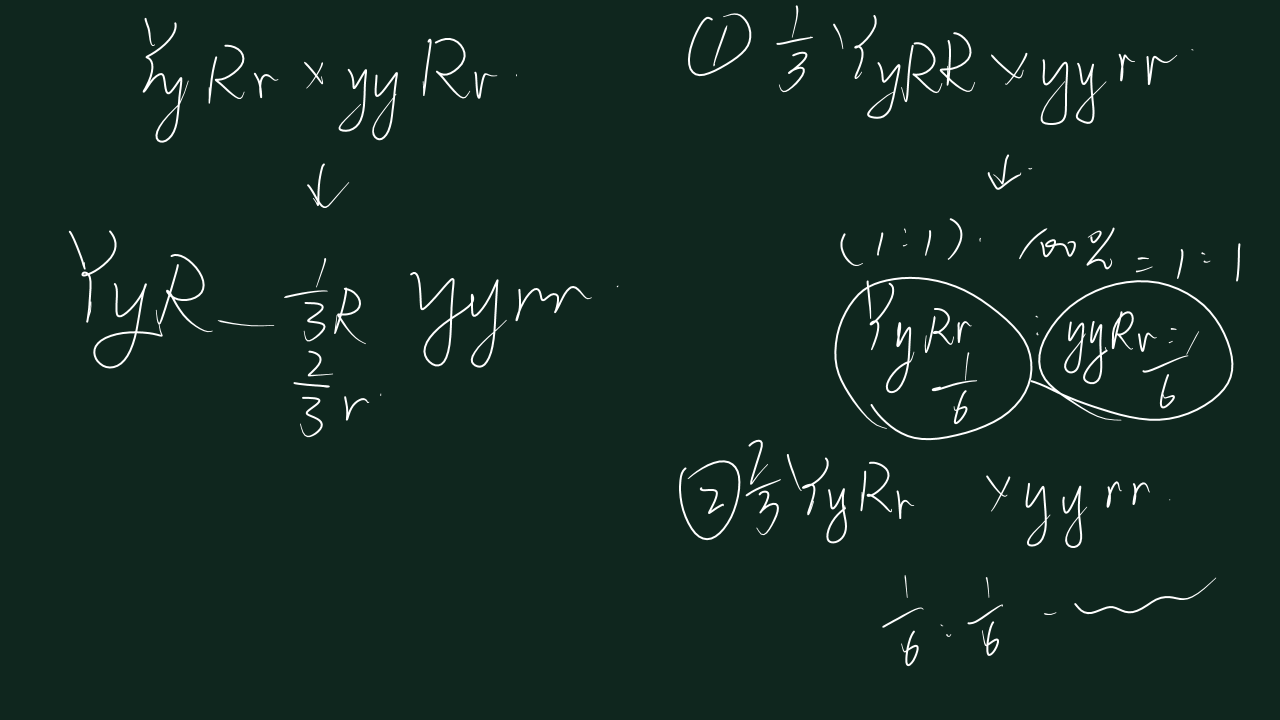 YyRr × yyRr
↓
YyR_ 1/3 R yyrr
2/3 r
① 1/3 YyRR × yyrr
↓
(1:1) · 100% = 1:1
YyRr 1/6 : yyRr = 1/6
② 2/3 YyRr × yyrr
1/6 : 1/6